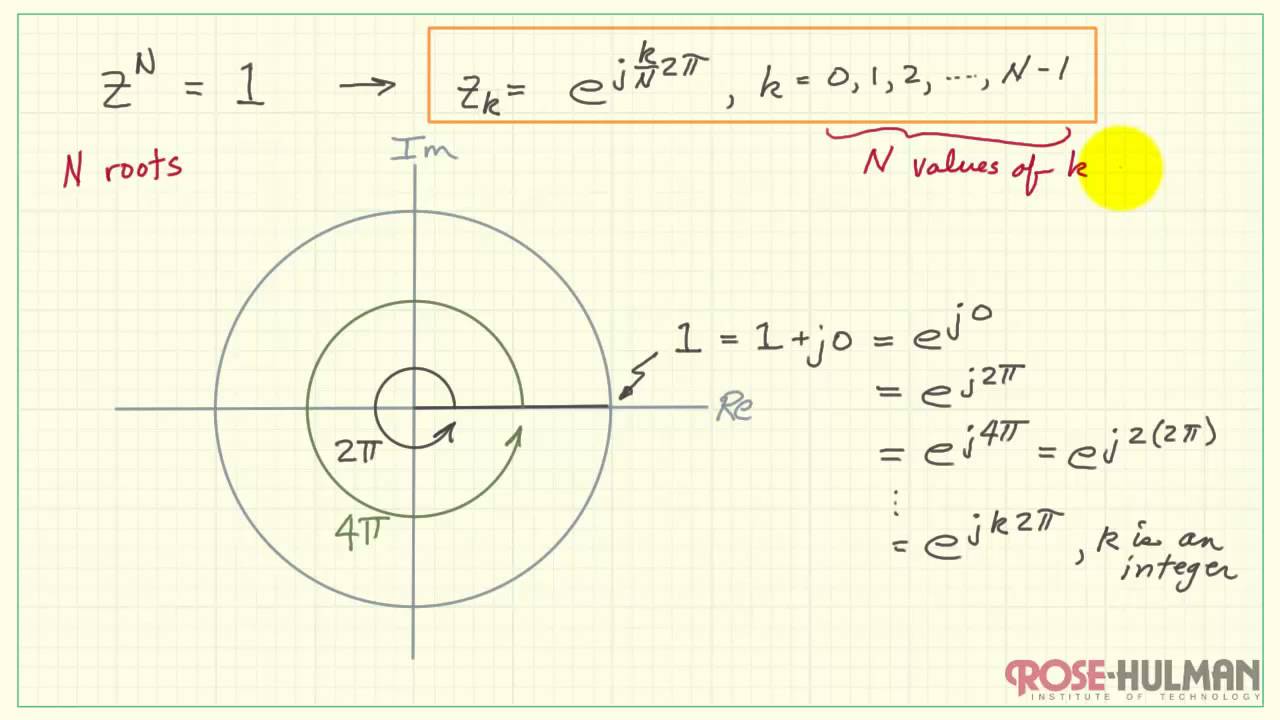 z^N = 1 → z_k = e^{j\frac{k}{N}2π}, k = 0, 1, 2, ...., N-1
N roots
N values of k
Im
1 = 1+j0 = e^{j0}
= e^{j2π}
Re
= e^{j4π} = e^{j2(2π)}
2π
4π
⋮
= e^{jk2π}, k is an
integer
ROSE-HULMAN
INSTITUTE OF TECHNOLOGY